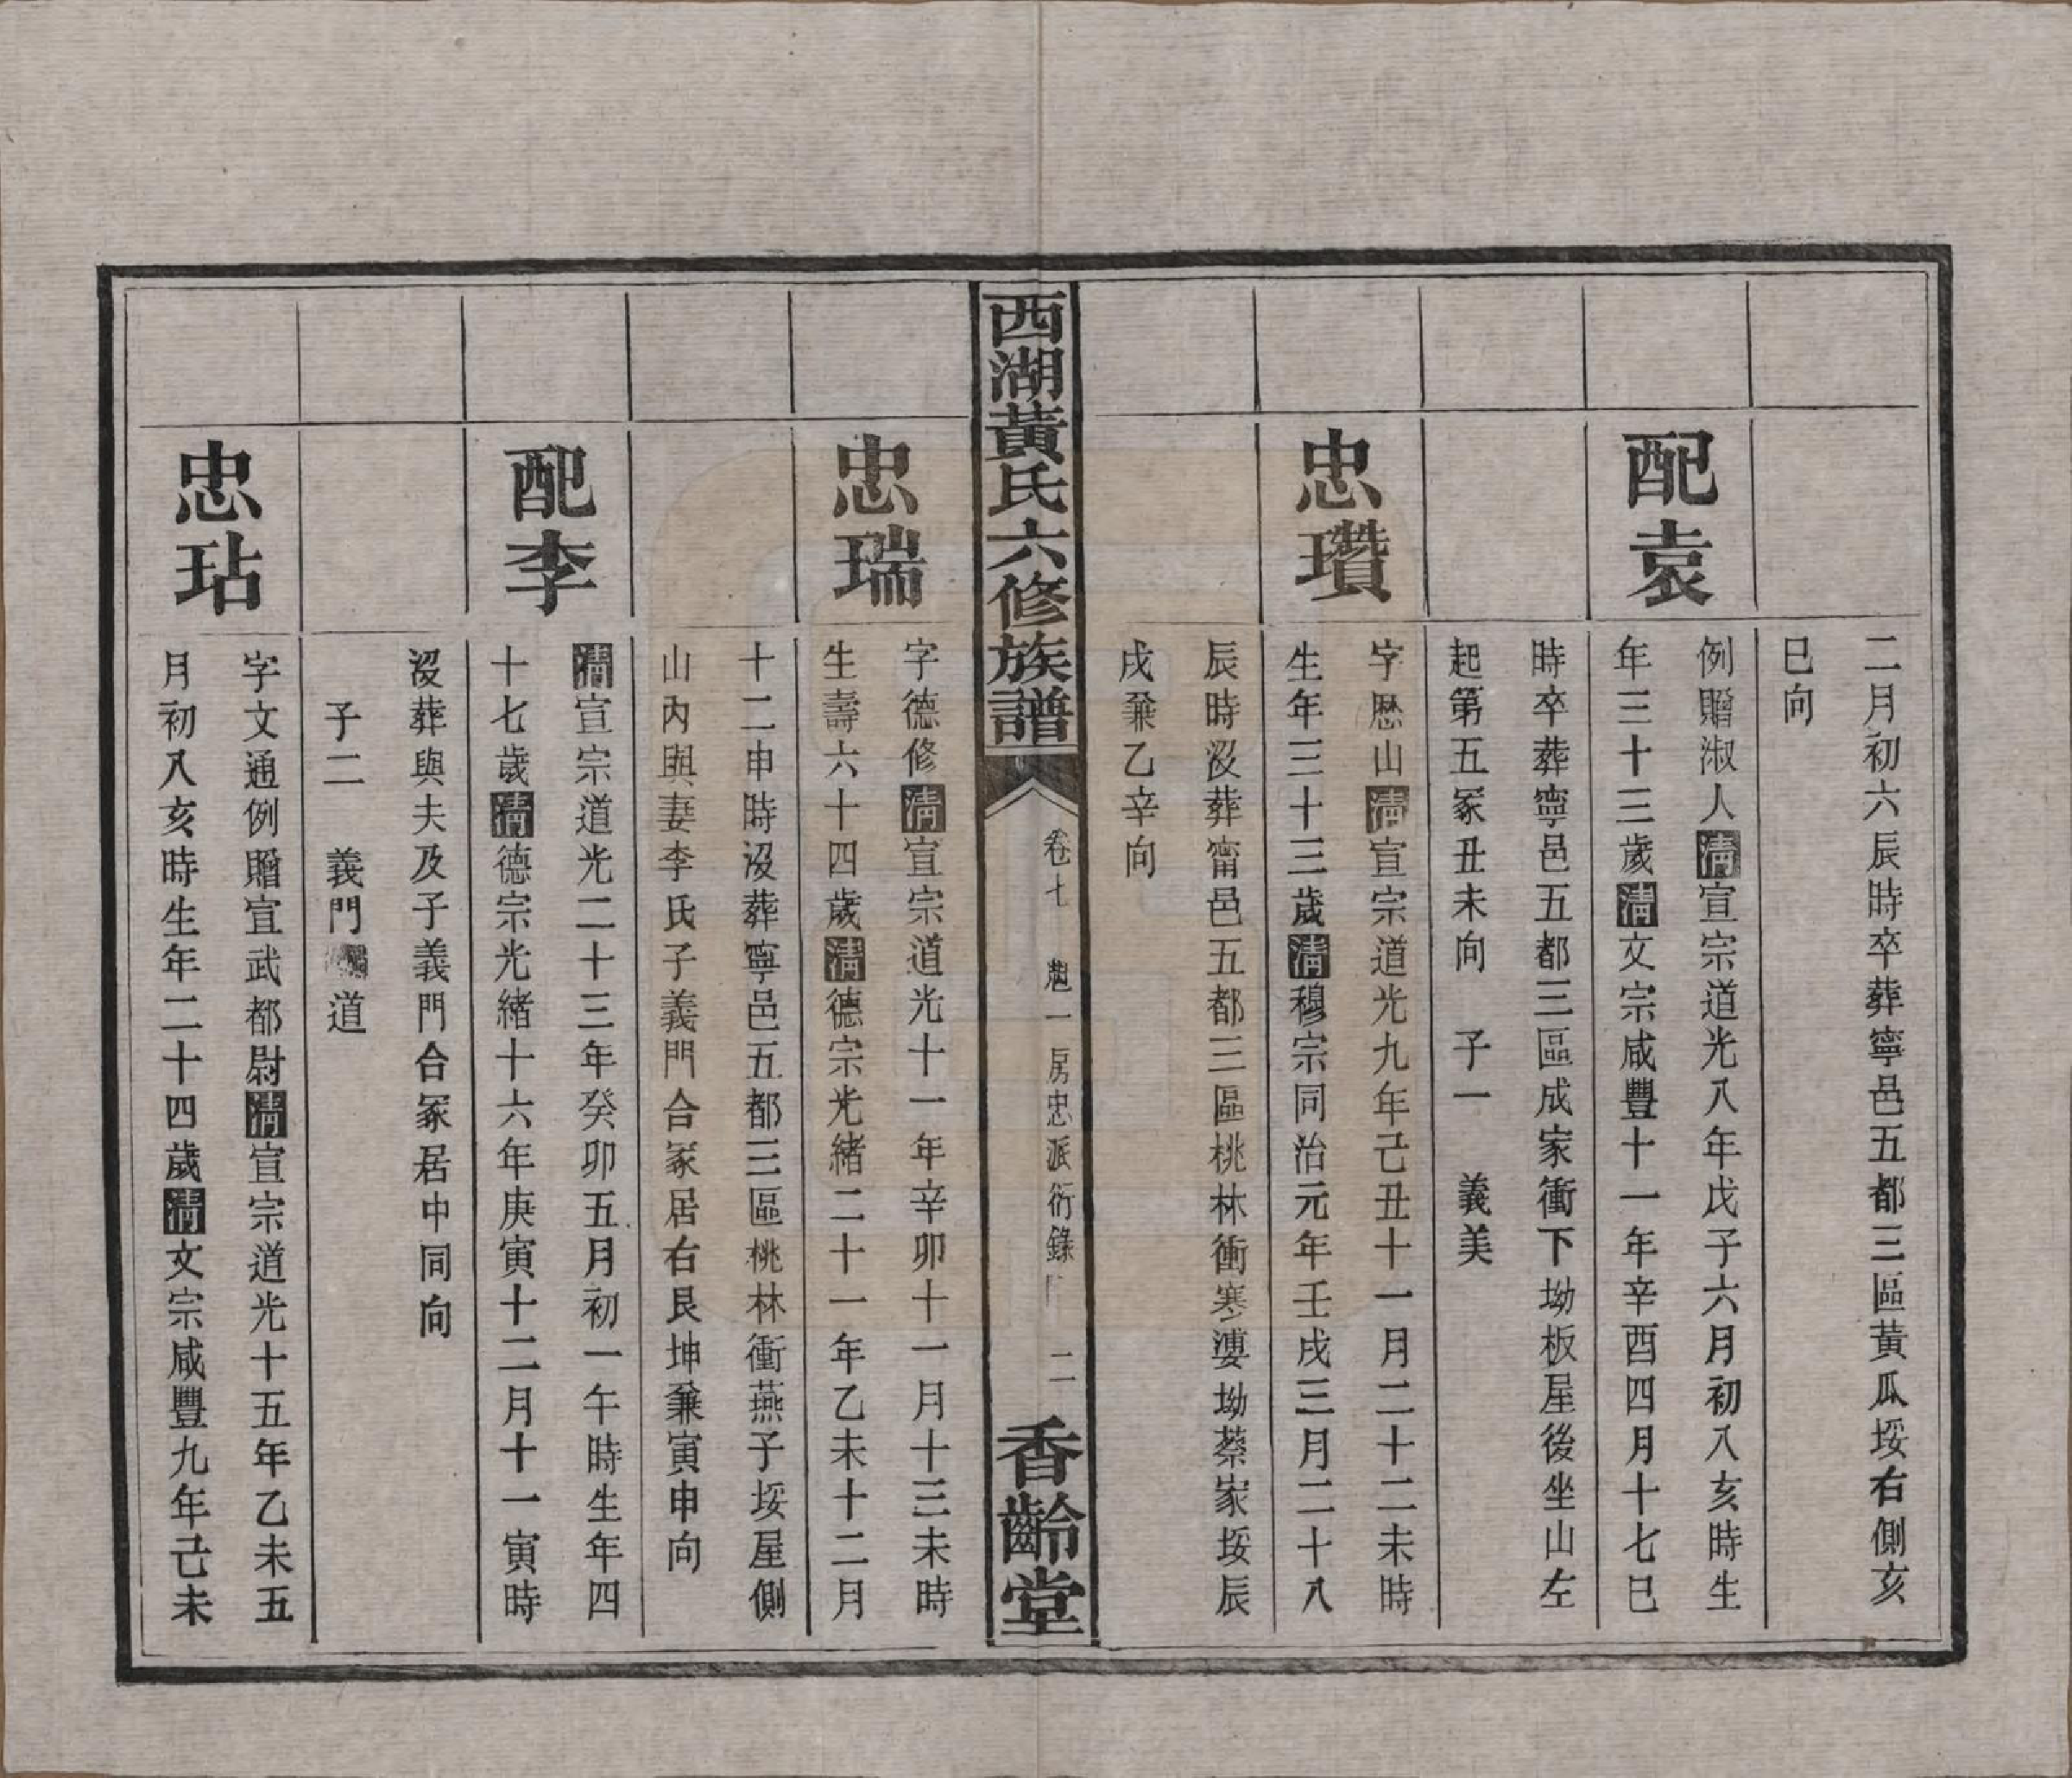 二月初六辰時卒葬寧邑五都三區黃瓜垵右側亥
巳向
配袁
例贈淑人清宣宗道光八年戊子六月初八亥時生
年三十三歲清文宗咸豐十一年辛酉四月十七巳
時卒葬寧邑五都三區成家衝下坳板屋後坐山左
起第五冢丑未向 子一 義美
忠瓚
字懋山清宣宗道光九年己丑十一月二十二未時
生年三十三歲清穆宗同治元年壬戌三月二十八
辰時沒葬甯邑五都三區桃林衝寒漊坳蔡家垵辰
戌兼乙辛向
西湖黃氏六修族譜
卷七 一房忠派衍錄 二
香齡堂
忠瑞
字德修清宣宗道光十一年辛卯十一月十三未時
生壽六十四歲清德宗光緒二十一年乙未十二月
十二申時沒葬寧邑五都三區桃林衝燕子垵屋側
山內與妻李氏子義門合冢居右艮坤兼寅申向
配李
清宣宗道光二十三年癸卯五月初一午時生年四
十七歲清德宗光緒十六年庚寅十二月十一寅時
沒葬與夫及子義門合冢居中同向
子二 義門 道
忠玷
字文通例贈宣武都尉清宣宗道光十五年乙未五
月初八亥時生年二十四歲清文宗咸豐九年己未